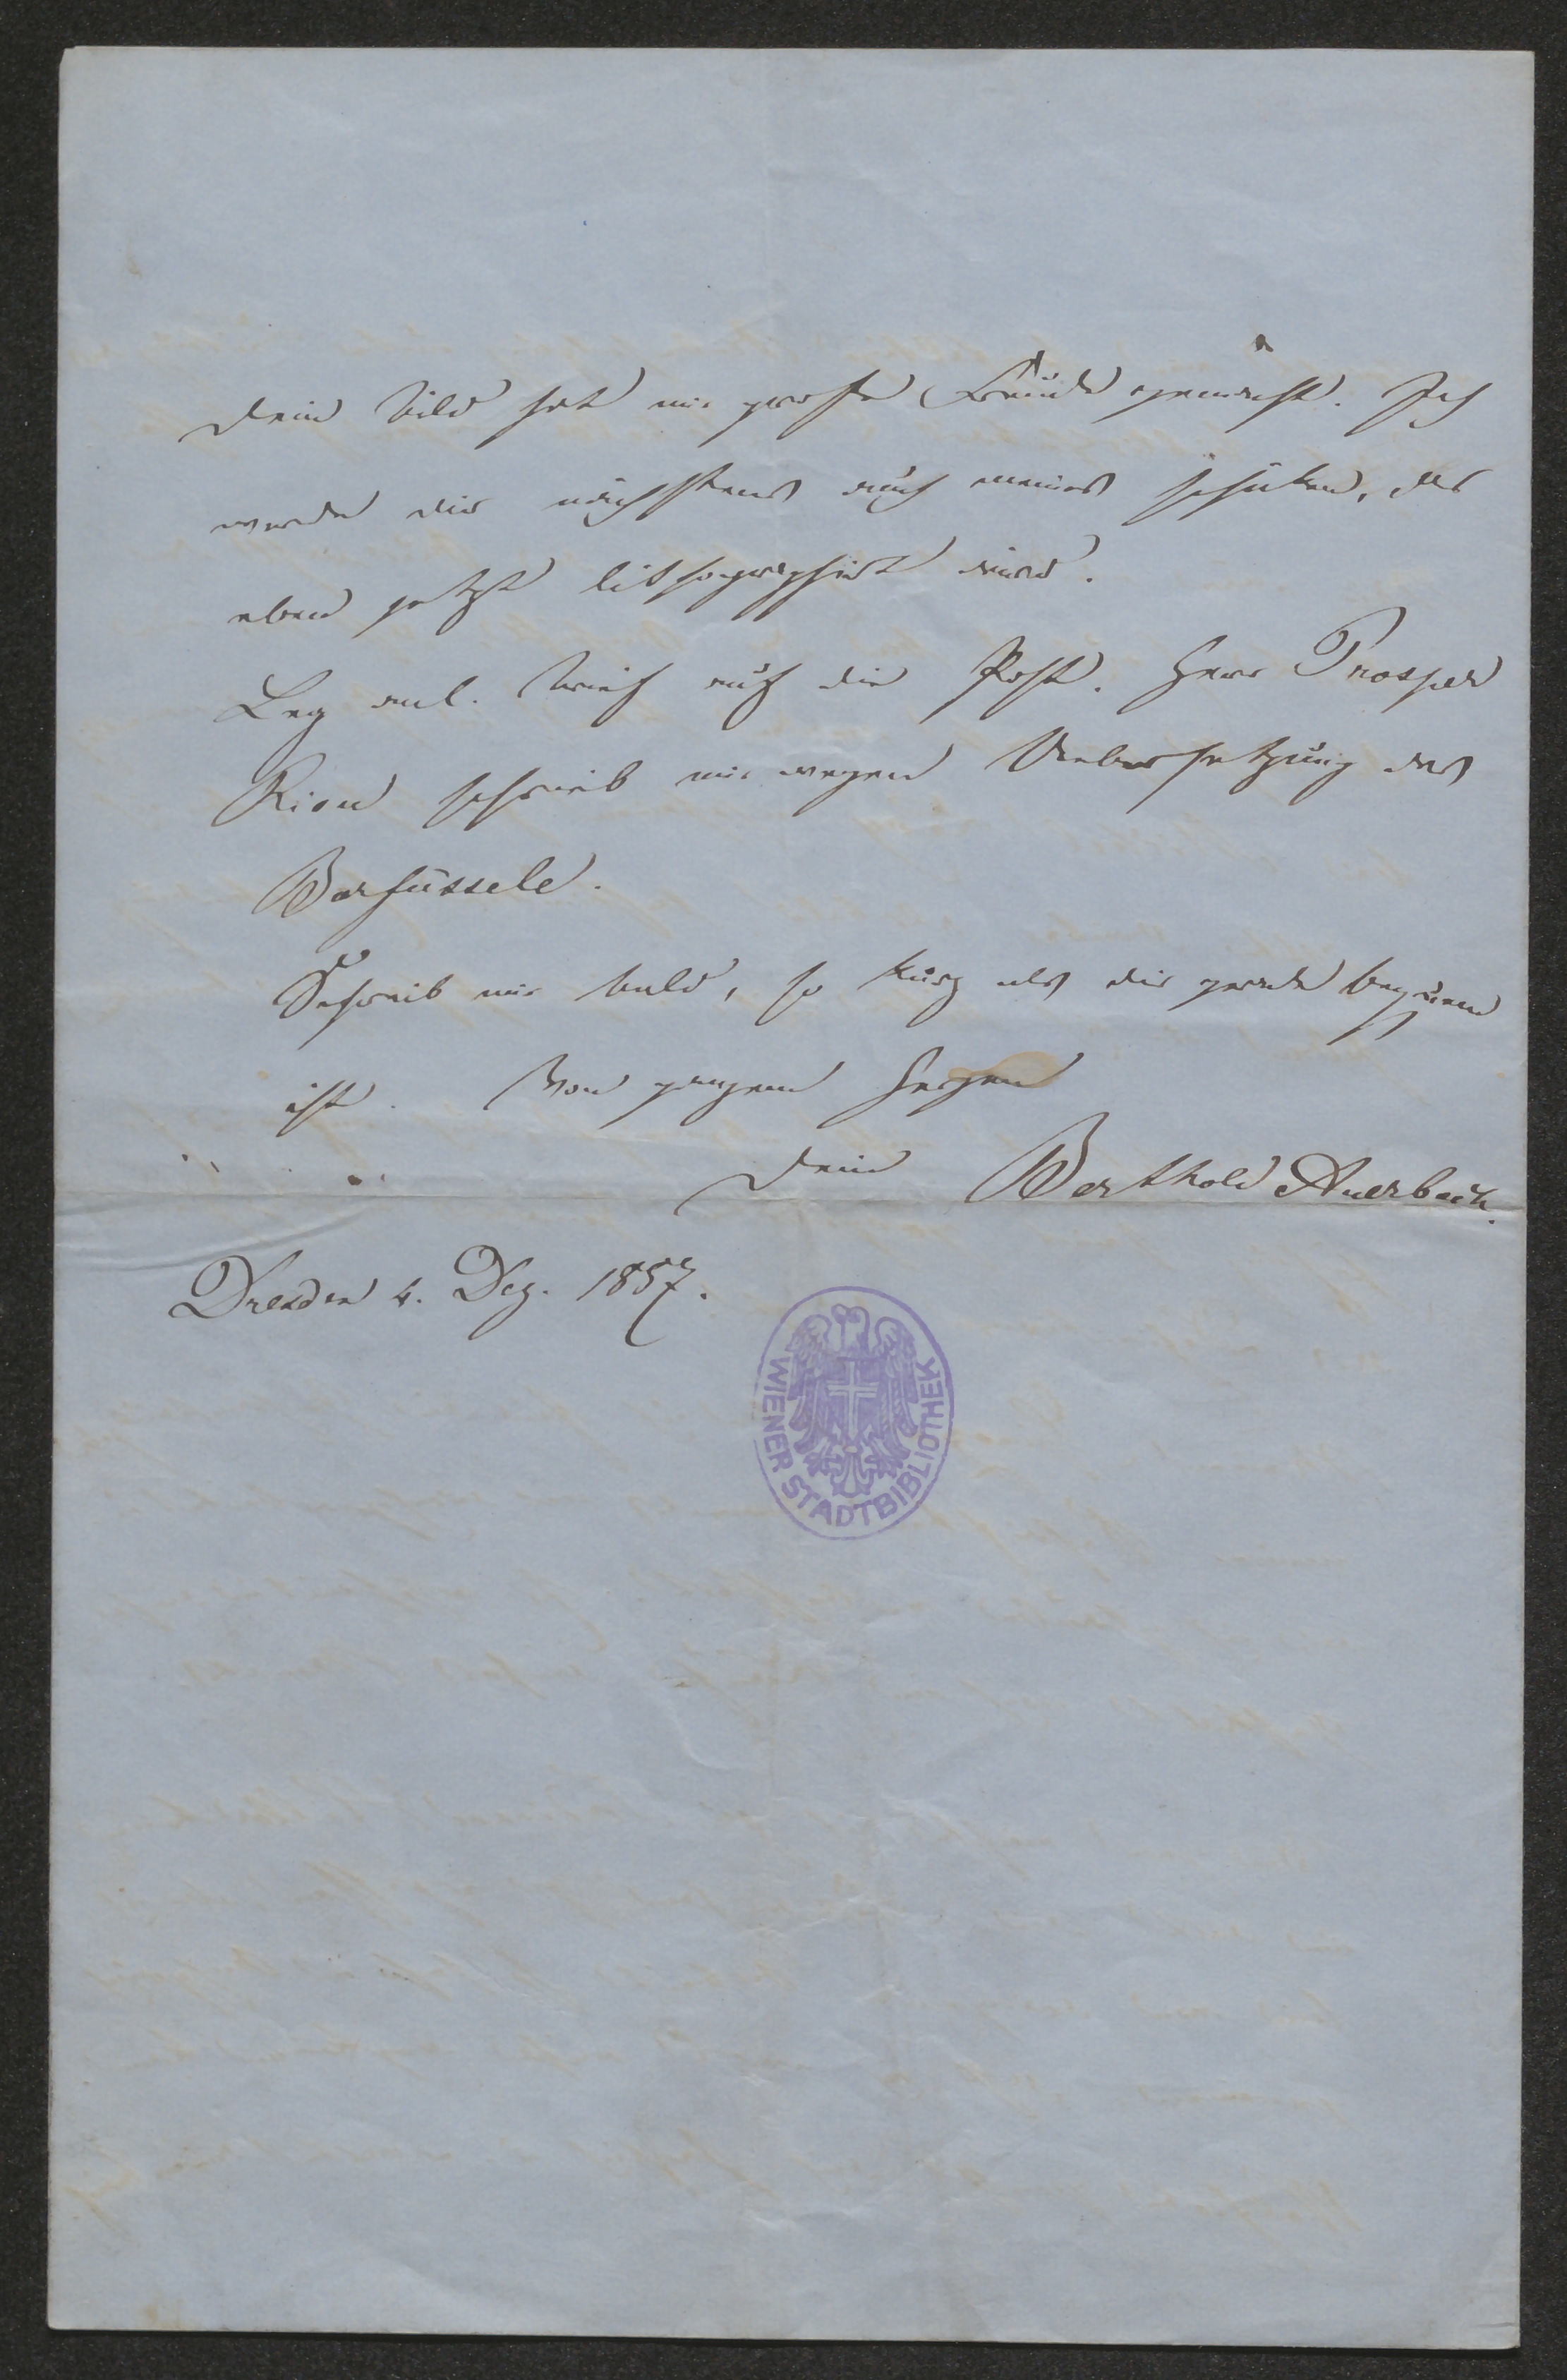 Dein Bild hat mir große Freude gemacht. Ich
werde dir nächstens auch meines schicken, das
eben jetzt lithographirt wird.
Leg anl. Brief auf die Post. Herr Prosper
schrieb mir wegen Uebersetzung des
Barfüssele.
Schreib mir bald, so kurz als dir gerade bequem
ist. Von ganzem Herzen
Dein Berthold Auerbach.
Dresden 4. Dez. 1857.
WIENER STADTBIBLIOTHEK